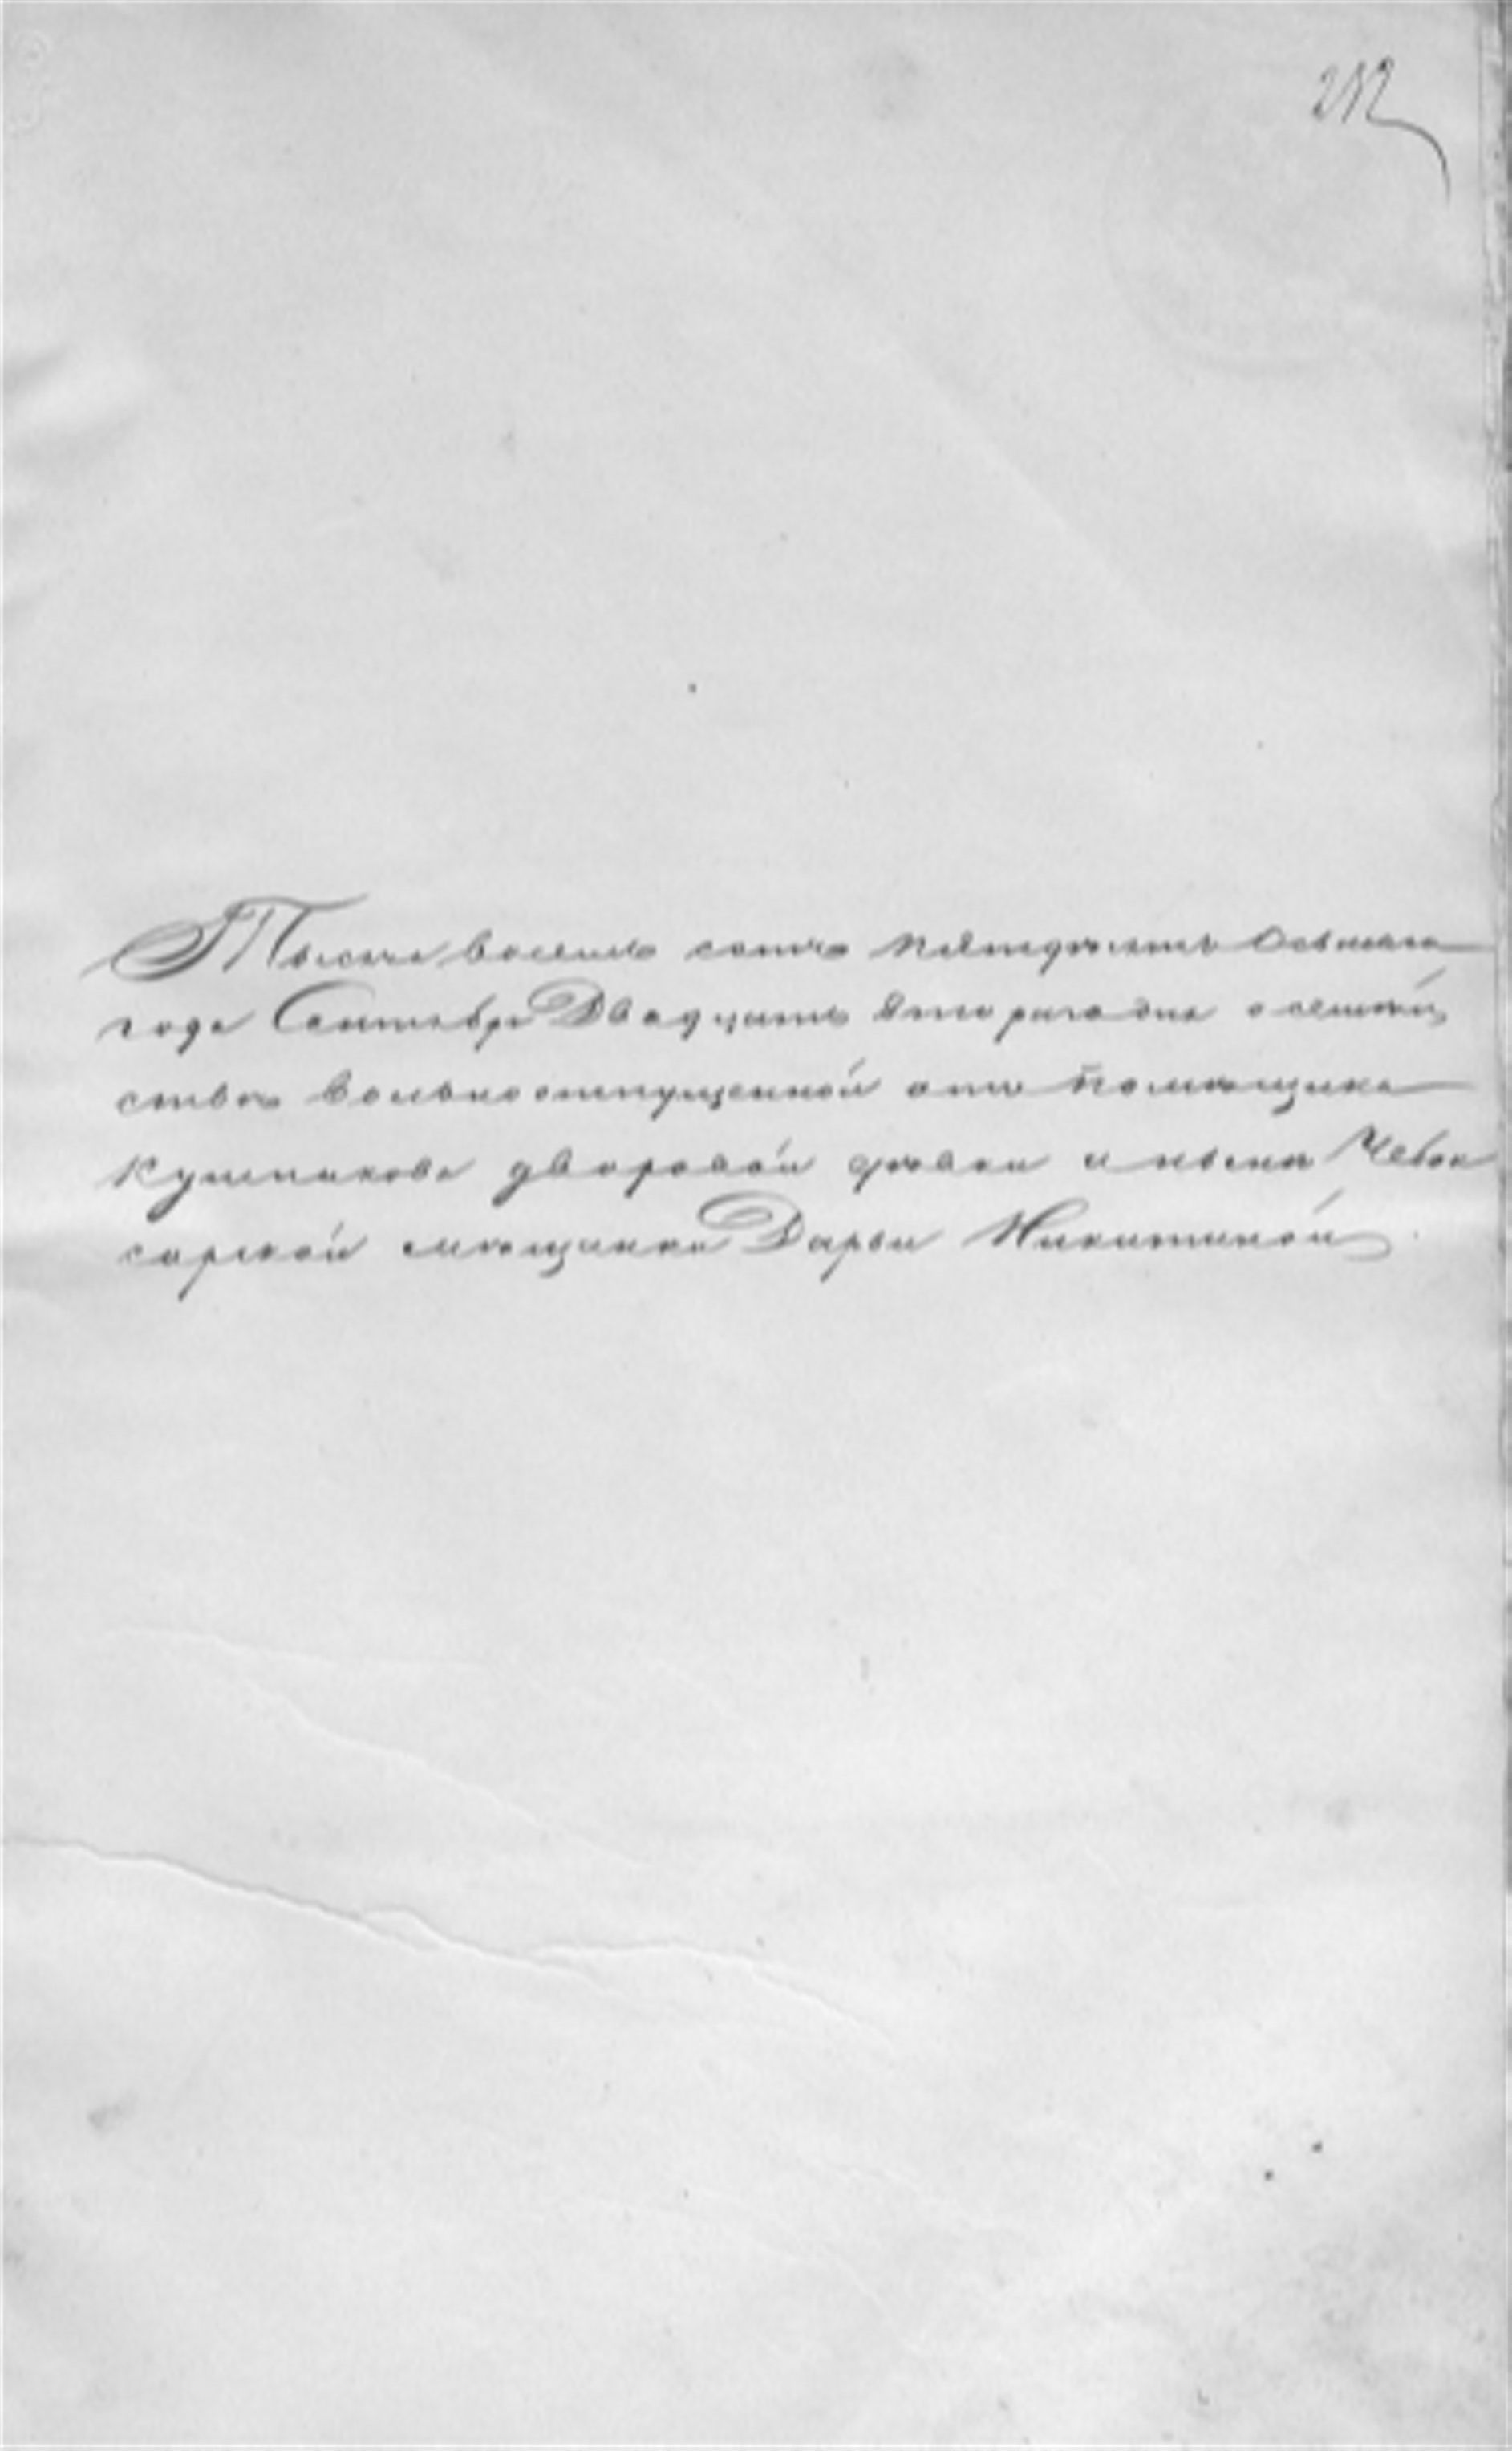 212
Тысяча восемь сотъ пятьдесятъ осьмаго
года Сентября Двадцать втораго дня о семей
ствѣ вольноотпущенной отъ помѣщика
Кушникова дворовой дѣвки и нынѣ Чебок
сарской мѣщанки Дарьи Никитиной